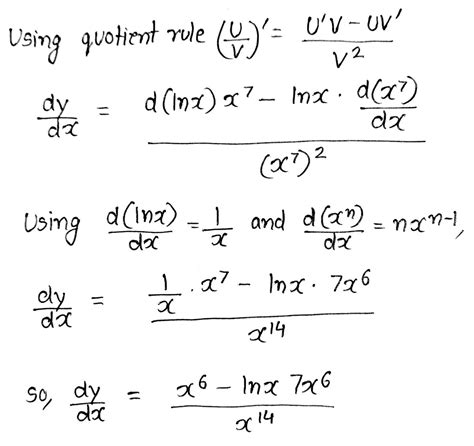 Using quotient rule (U/V)' = (U'V - UV')/V²
dy/dx = (d(lnx) x⁷ - lnx · d(x⁷)/dx)/(x⁷)²
Using d(lnx)/dx = 1/x and d(xⁿ)/dx = nxⁿ⁻¹,
dy/dx = (1/x · x⁷ - lnx · 7x⁶)/x¹⁴
so, dy/dx = (x⁶ - lnx 7x⁶)/x¹⁴